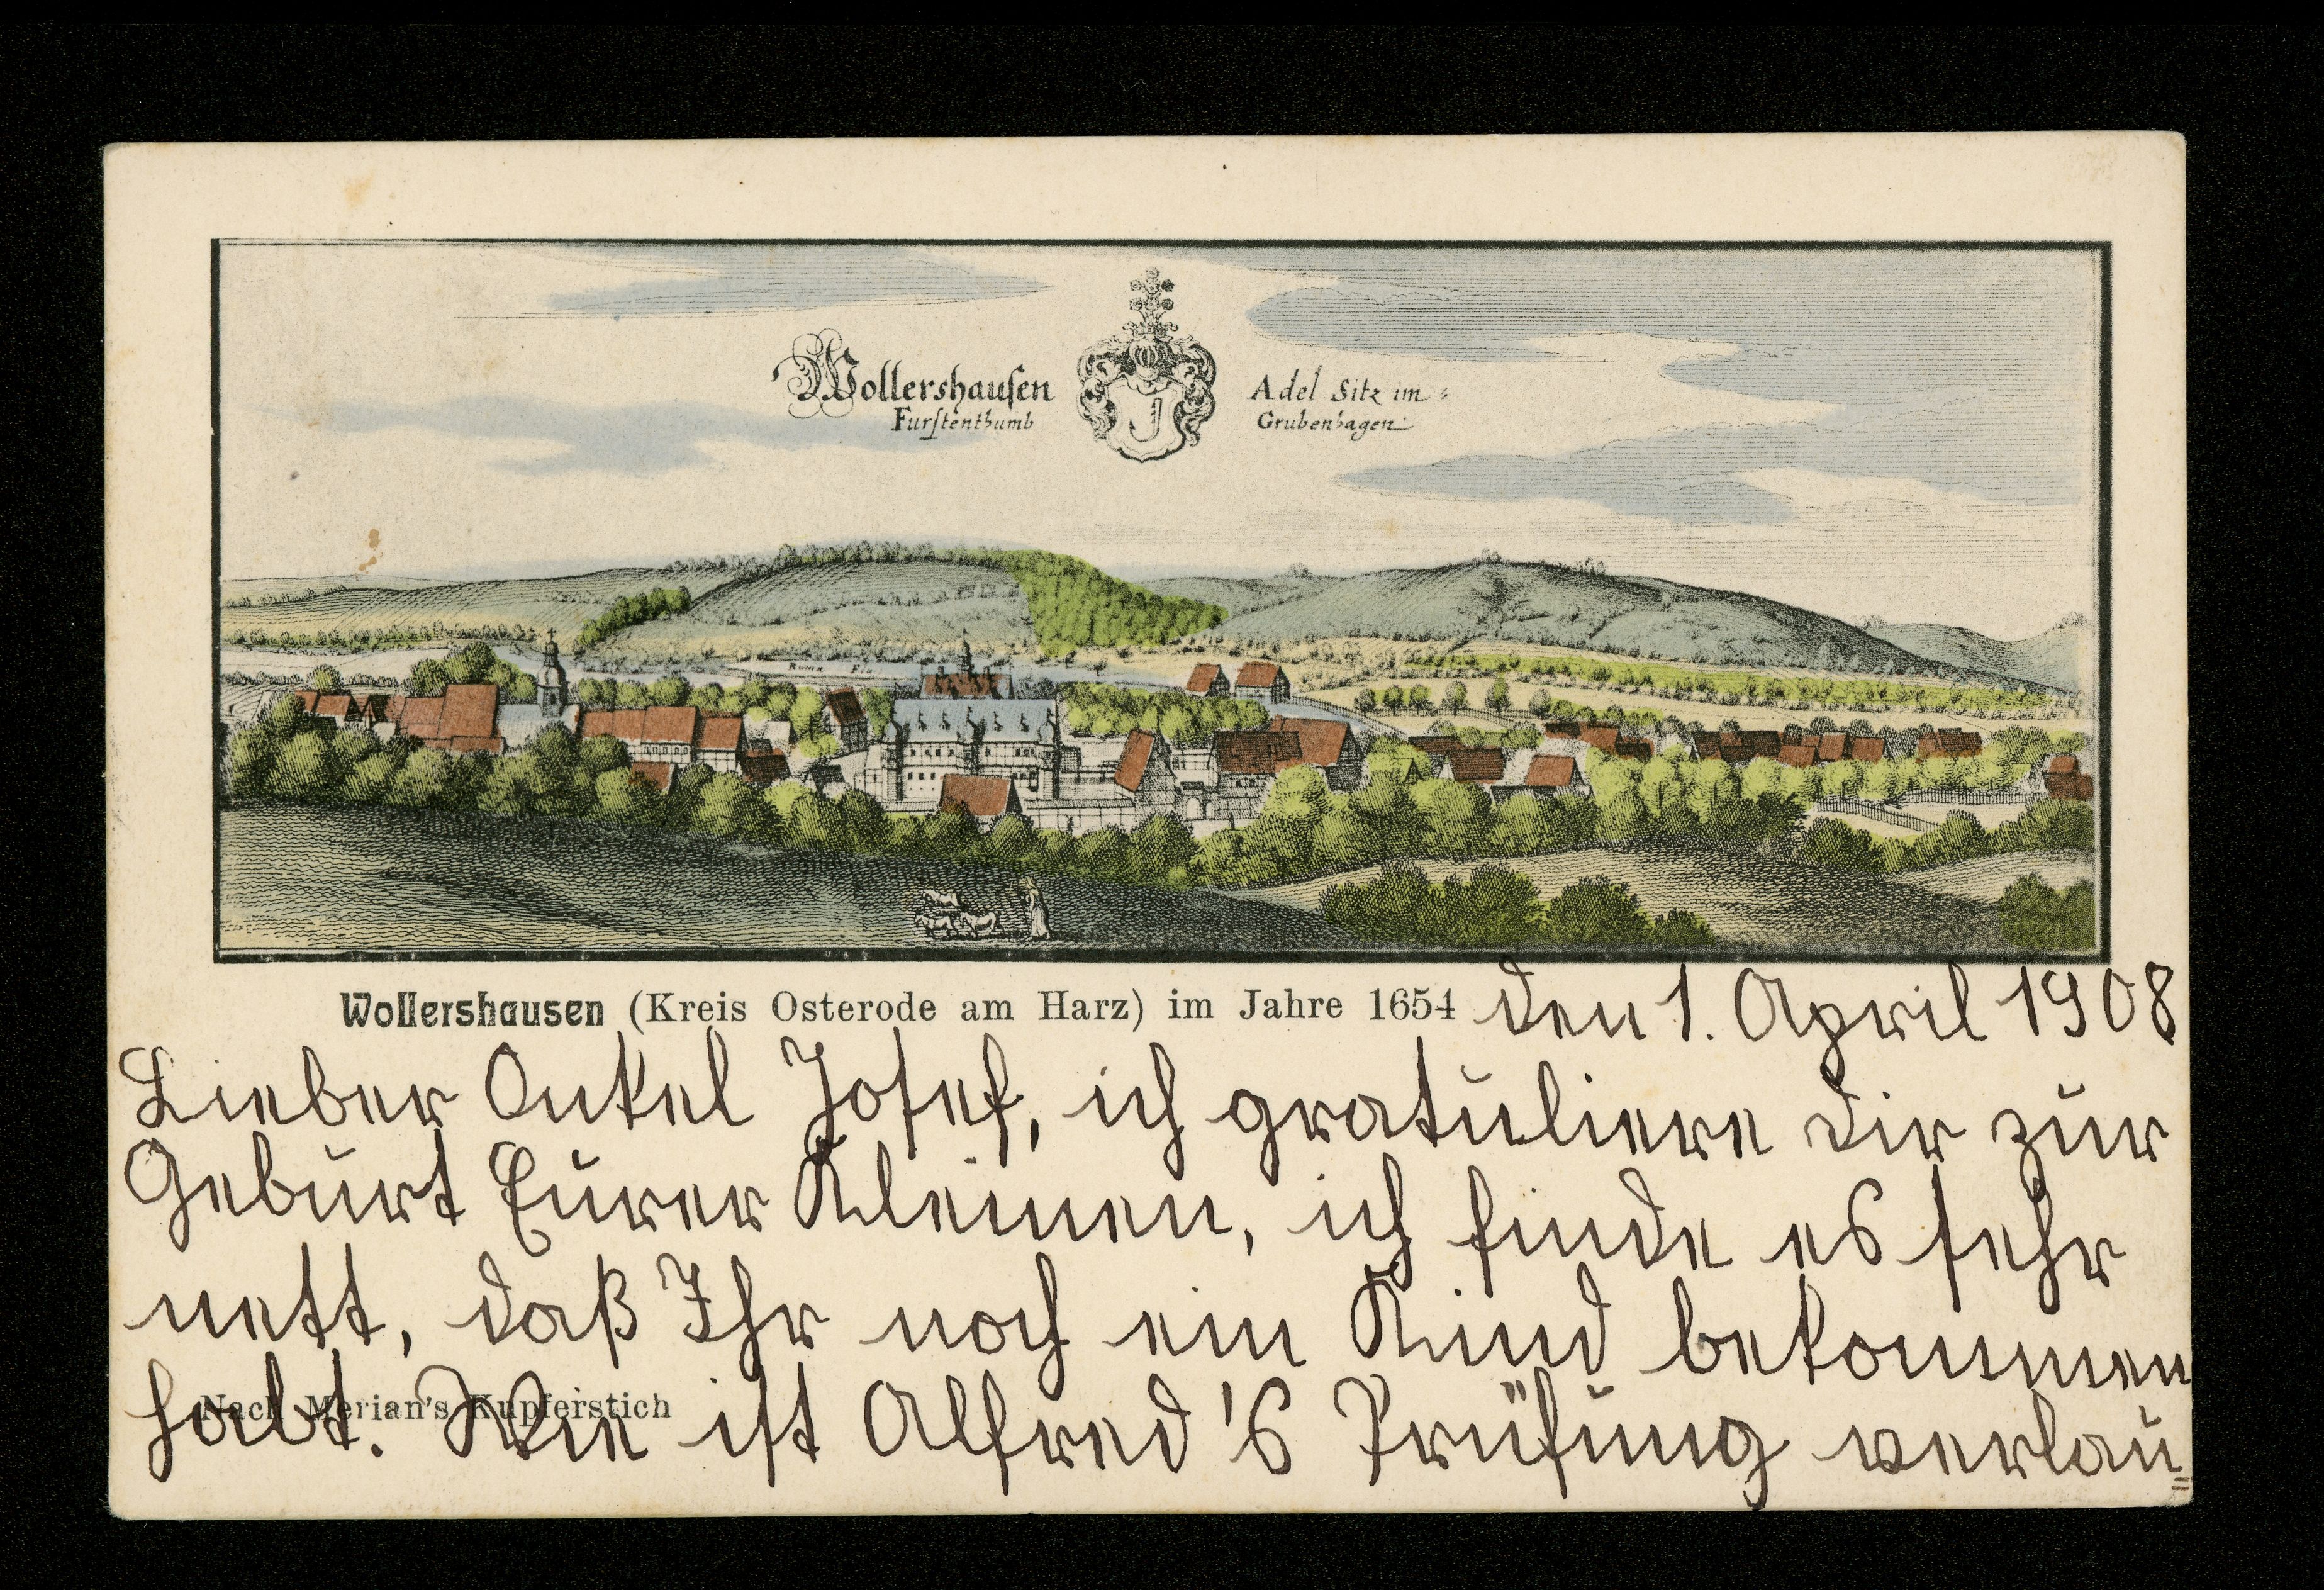 Wollershausen Adel Sitz im
Furstenthumb Grubenhagen
Ruma Flu
Wollershausen (Kreis Osterode am Harz) im Jahre 1654
den 1. April 1908
Lieber Onkel Josef, ich gratuliere Dir zur
Geburt Eurer Kleinen, ich finde es sehr
nett, daß Ihr noch ein Kind bekommen
habt. Wie ist Alfred's Prüfung verlau=
Nach Merian's Kupferstich